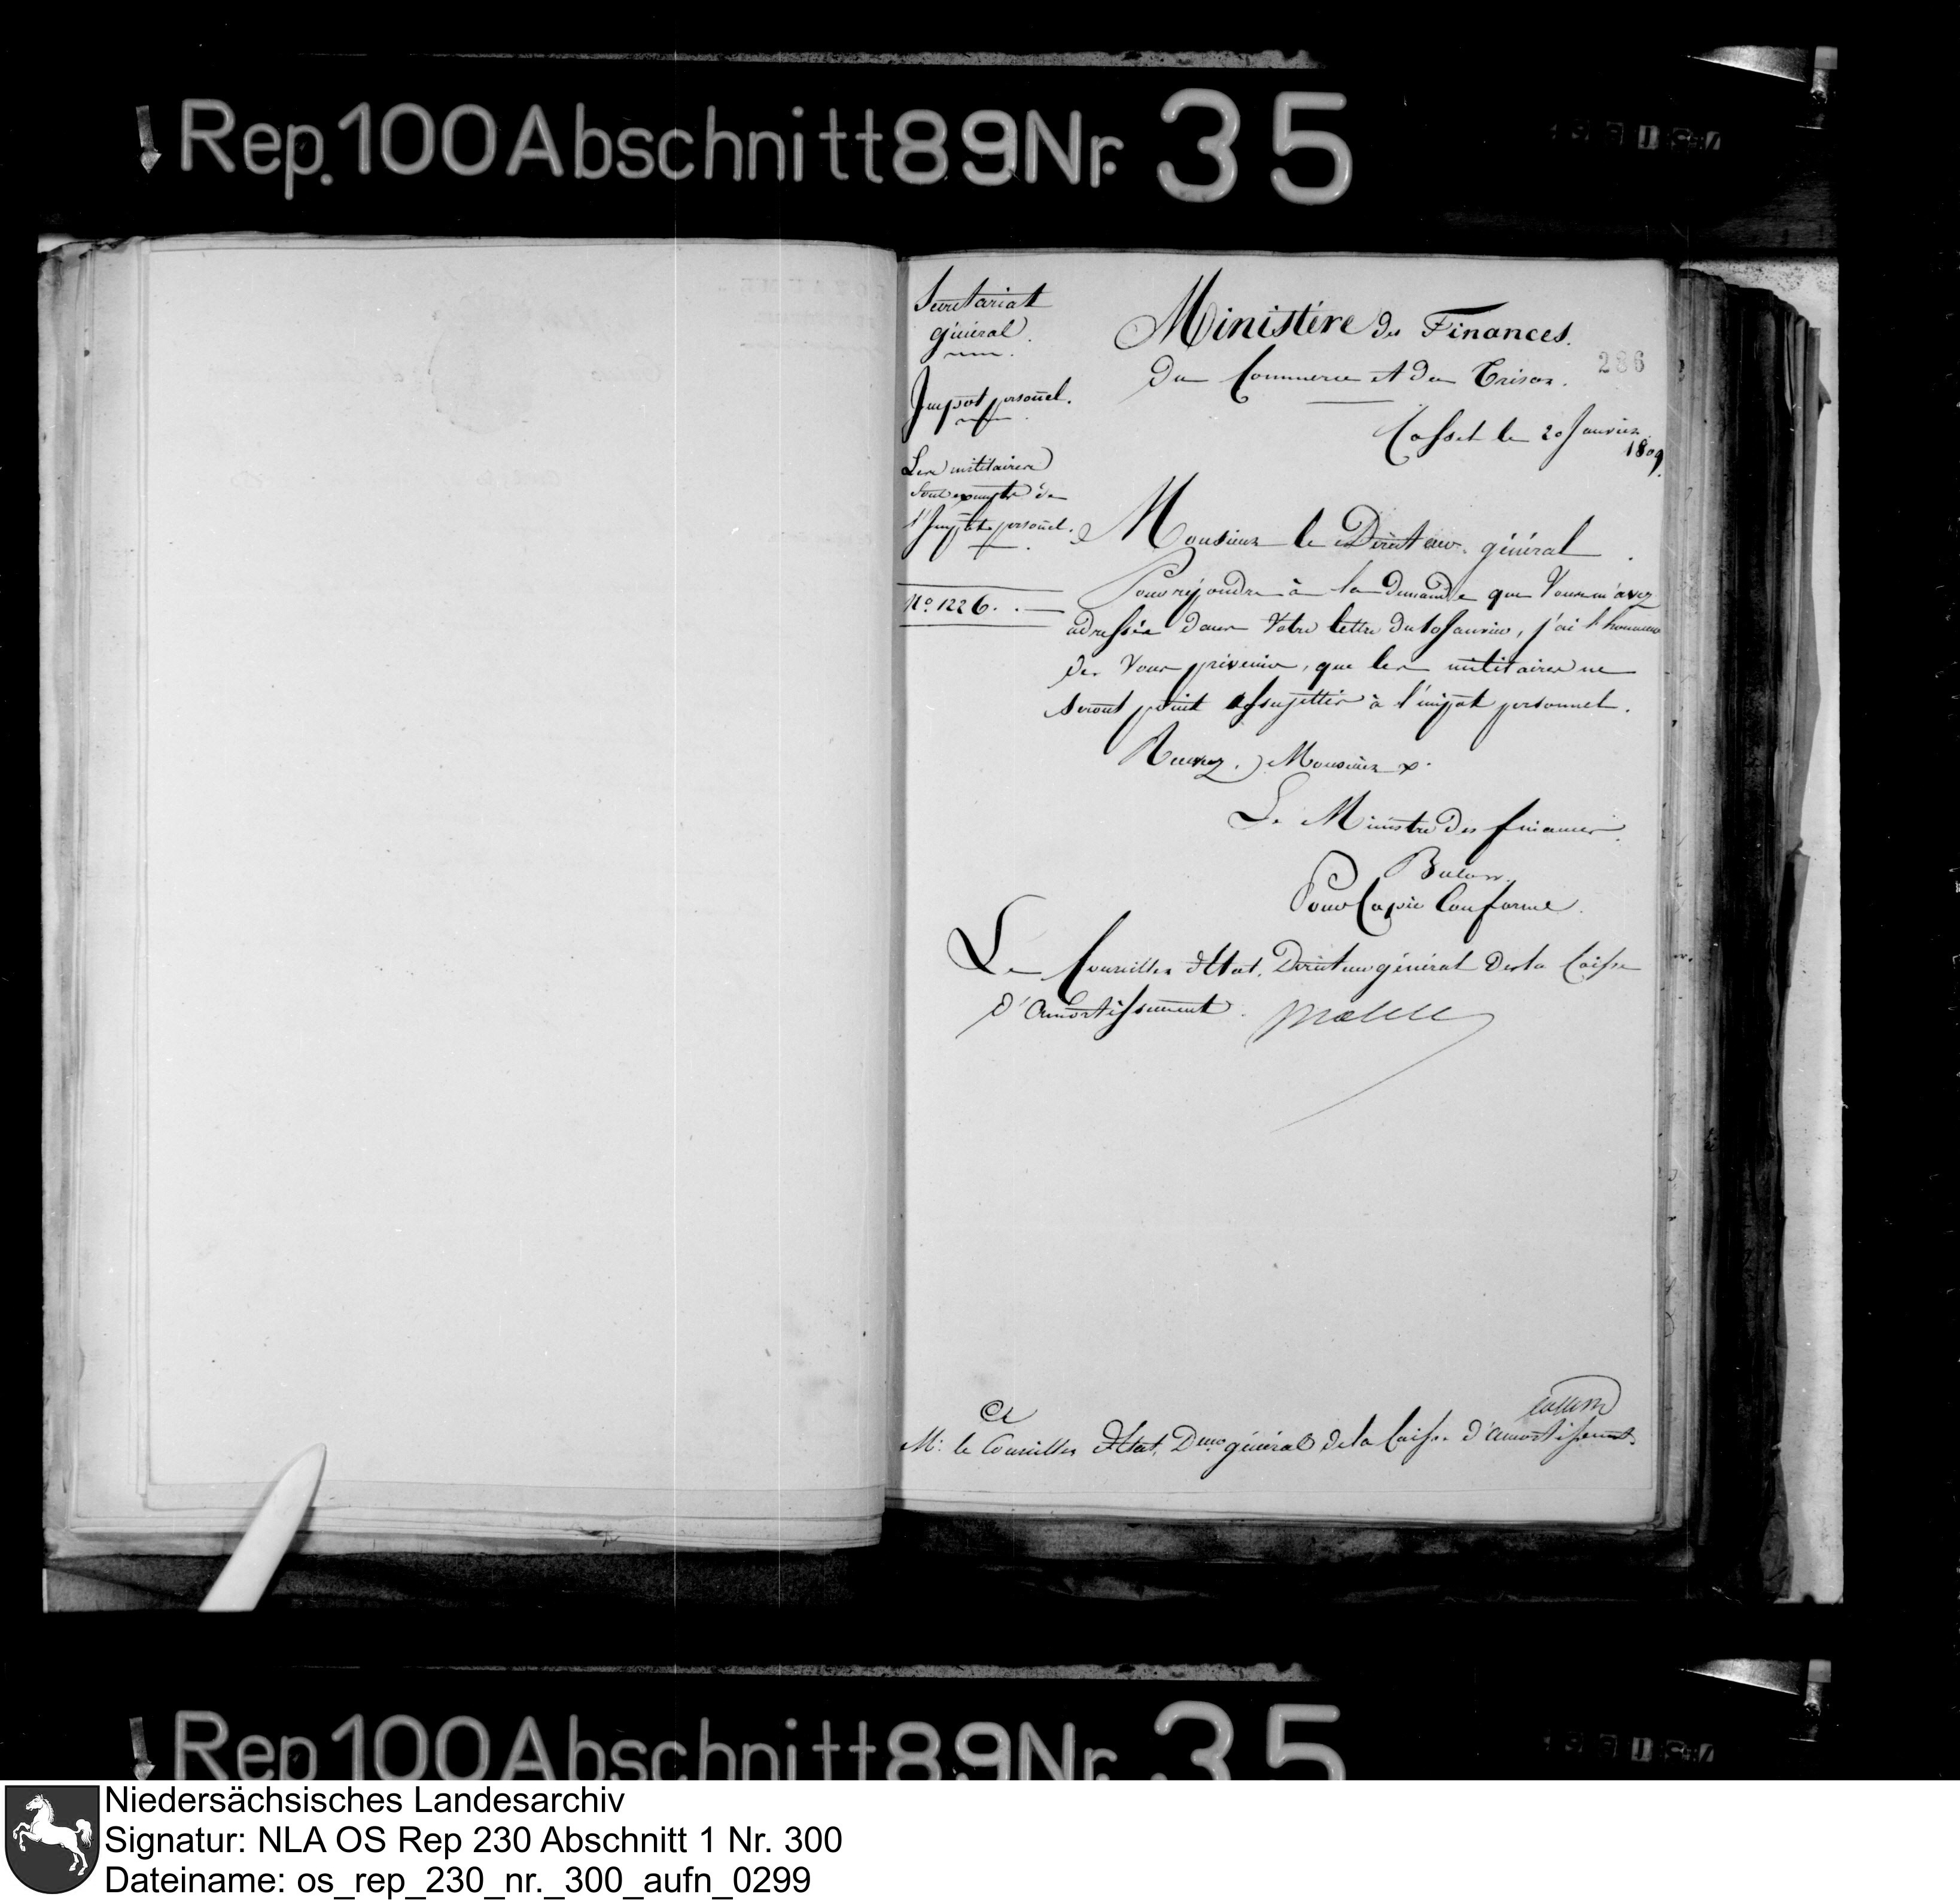 Rep. 100 Abschnitt 89 Nr. 35
Secretariat
général.
Impot personel.
Les militaires
sont exempts de
l'Impot personel.
N.º 1226.
Ministére des Finances.
du Commerce et du Trésor.
286
Cassel le 20 Janvier
1809.
Monsieur le Directeur général
Pour répondre à la demande que Vous m'avez
adressée dans Votre lettre du 10 Janvier, j'ai l'honneur
de Vous prévenir, que les militaires ne
seront point assujettis à l'impôt personnel.
Recevez, Monsieur
Le Ministre des finances.
Bulow.
Pour Copie Conforme.
Le Conseiller d'Etat, Directeur général de la Caisse
d'Amortissement.
a
M. le Conseiller d'Etat, D.eur général de la Caisse d'Amortissement.
Rep 100 Abschnitt 89 Nr. 35
Niedersächsisches Landesarchiv
Signatur: NLA OS Rep 230 Abschnitt 1 Nr. 300
Dateiname: os_rep_230_nr._300_aufn_0299